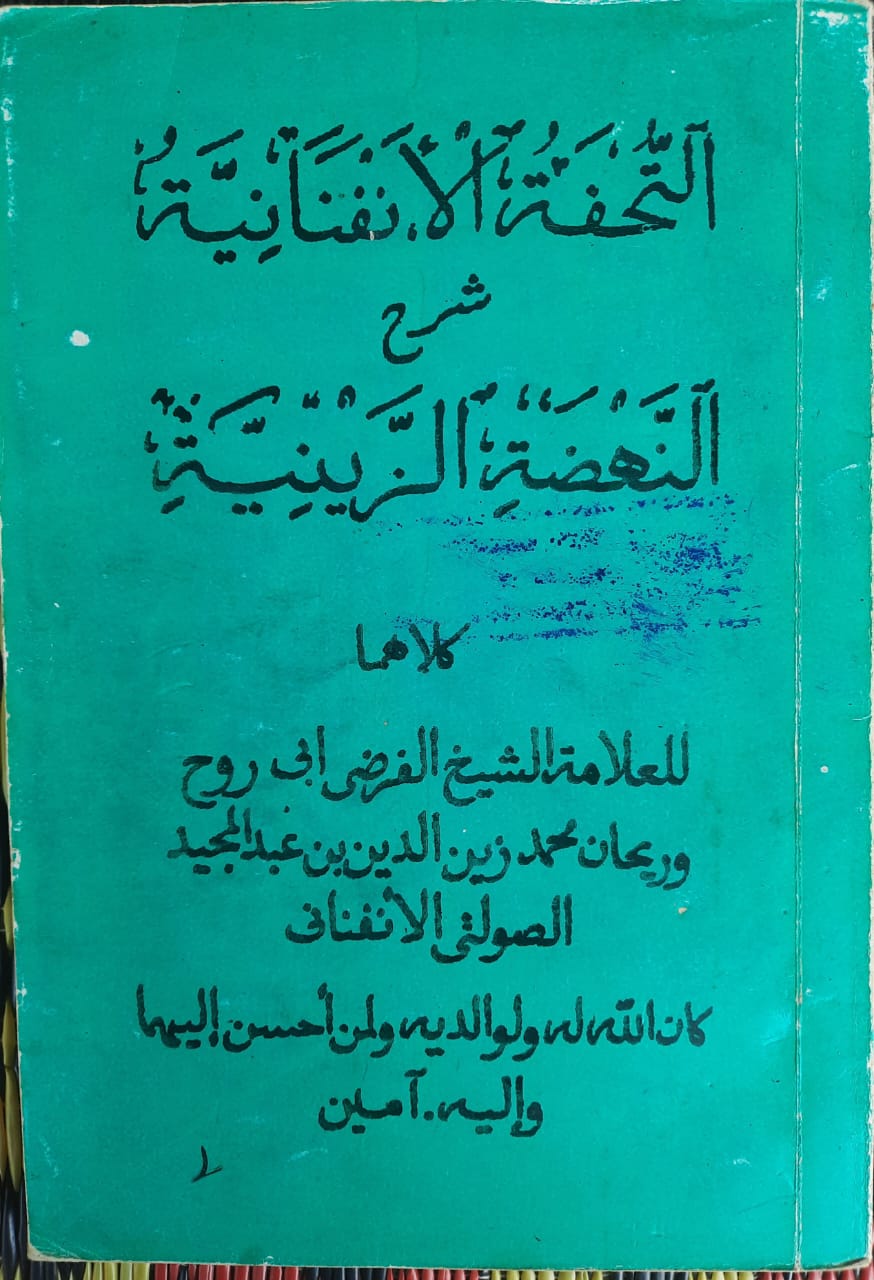 اَلتُّحْفَةُ الْأَنْفَنَانِيَّةُ
شرح
اَلنَّهْضَةِ الزَّيْنِيَّةِ
كلاهما
للعلامة الشيخ الفرضى ابى روح
وريحان محمد زين الدين بن عبد المجيد
الصولتى الأنفنانى
كان الله له ولوالديه ولمن أحسن إليهما
وإليه. آمين